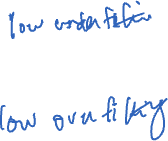 low underfitting
low overfitting